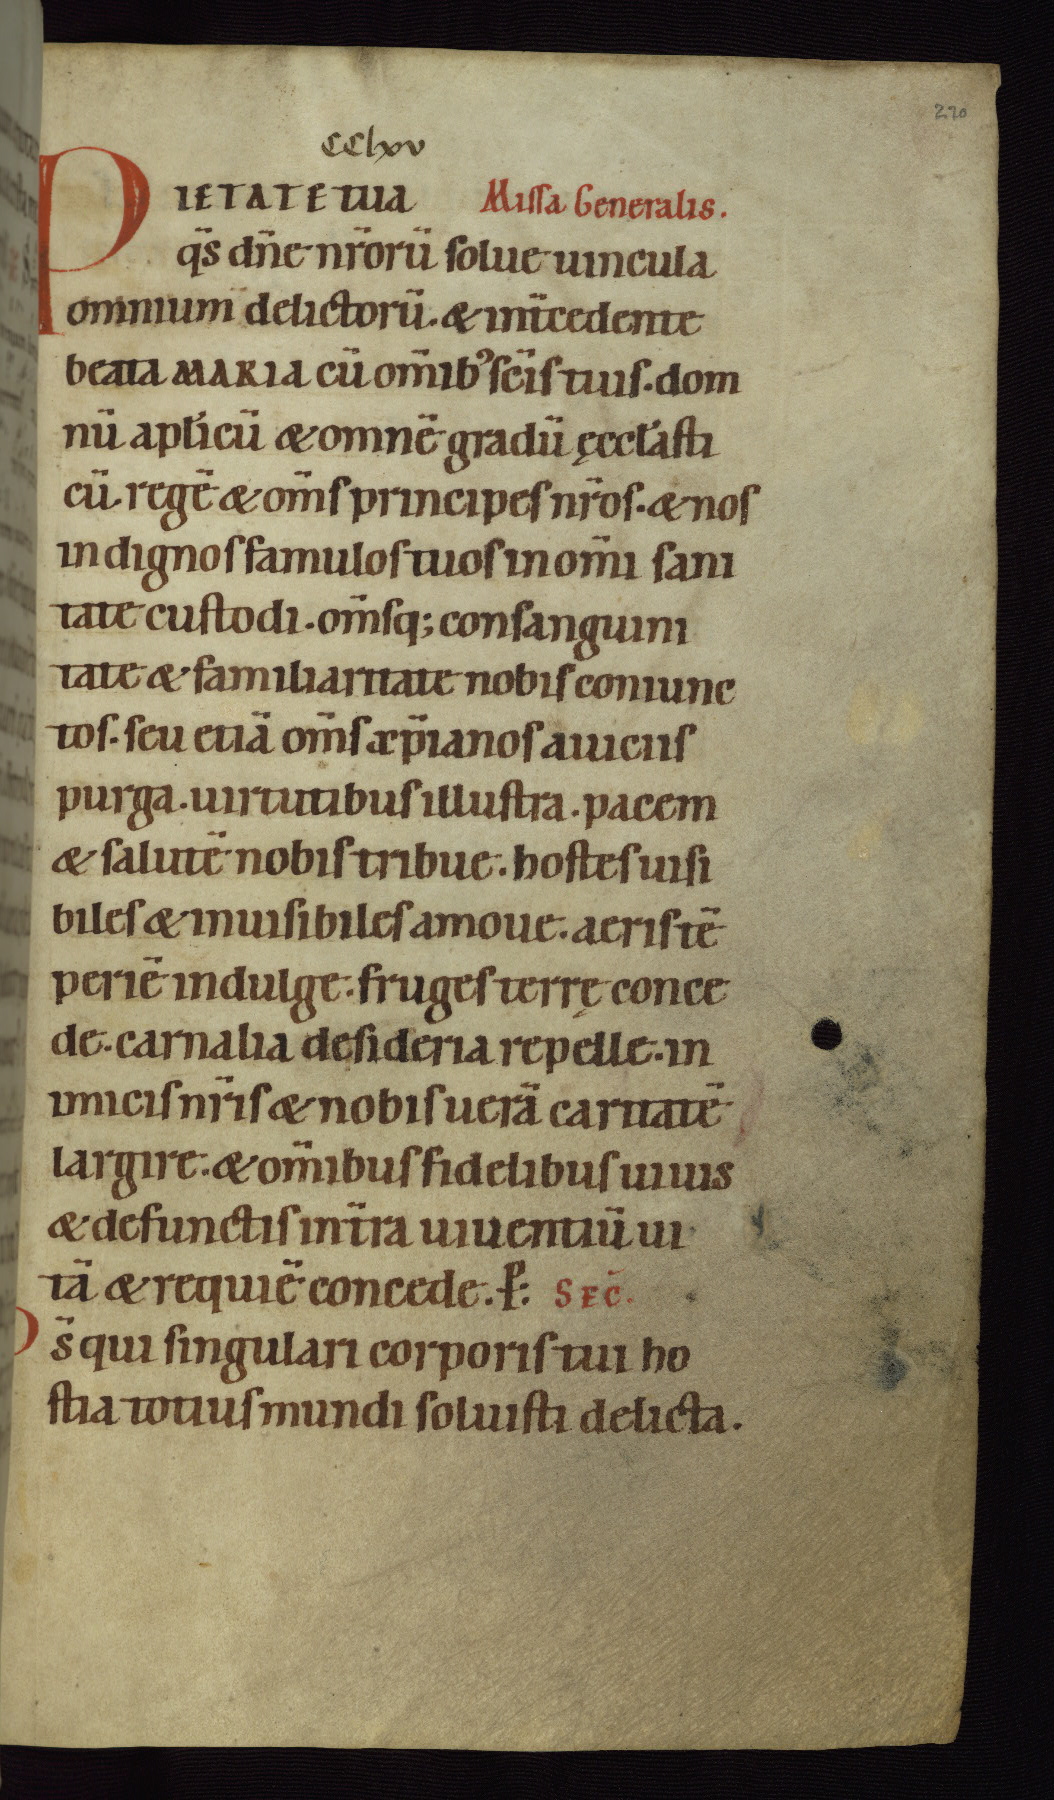 270
CClxv
PIETATE TUA Missa Generalis.
q̄s dn̄e nr̄orū solue uincula
omnium delictorū. & int̄cedente
beata MARIA cū om̄ibꝰ sc̄is tuis. dom
nū apl̄icū & omnē gradū ęccl̄asti
cū. regē & om̄s principes nr̄os. & nos
indignos famulos tuos in om̄i sani
tate custodi. om̄sq; consanguini
tate & familiaritate nobis coniunc
tos. seu etiā om̄s xp̄ianos a uiciis
purga. uirtutibus illustra. pacem
& salutē nobis tribue. hostes uisi
biles & inuisibiles amoue. aeris tē
periē indulge. fruges terrę conce
de. carnalia desideria repelle. in
imicis nr̄is & nobis uerā caritatē
largire. & om̄ibus fidelibus uiuis
& defunctis in t̄ra uiuentiū ui
tā & requiē concede. P: SEC̄.
Ds̄ qui singulari corporis tui ho
stia totius mundi soluisti delicta.